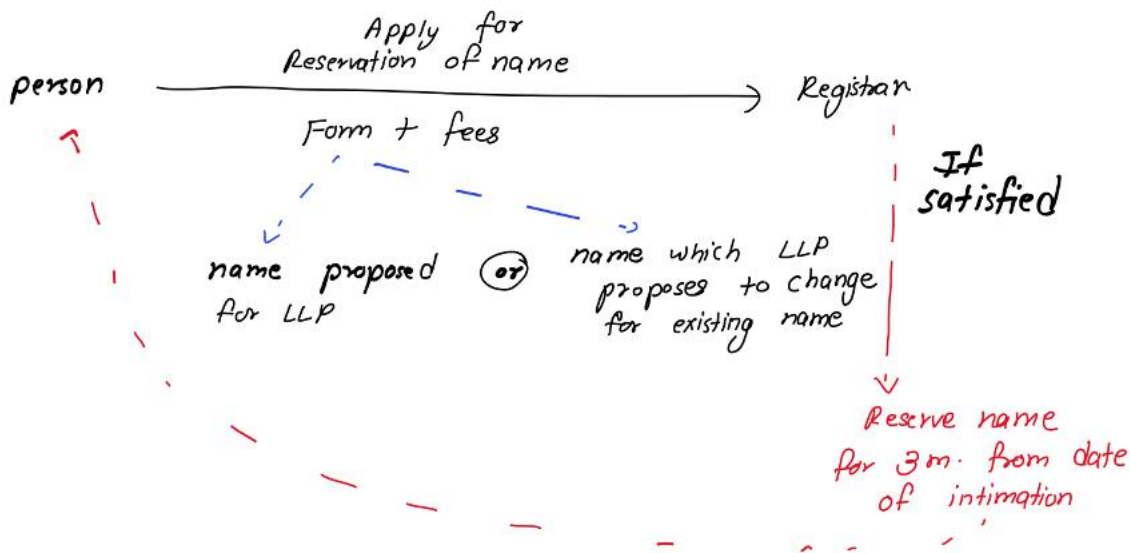 Apply for
Reservation of name
person
Registrar
Form + fees
If
satisfied
name proposed
for LLP
or
name which LLP
proposes to change
for existing name
Reserve name
for 3m. from date
of intimation